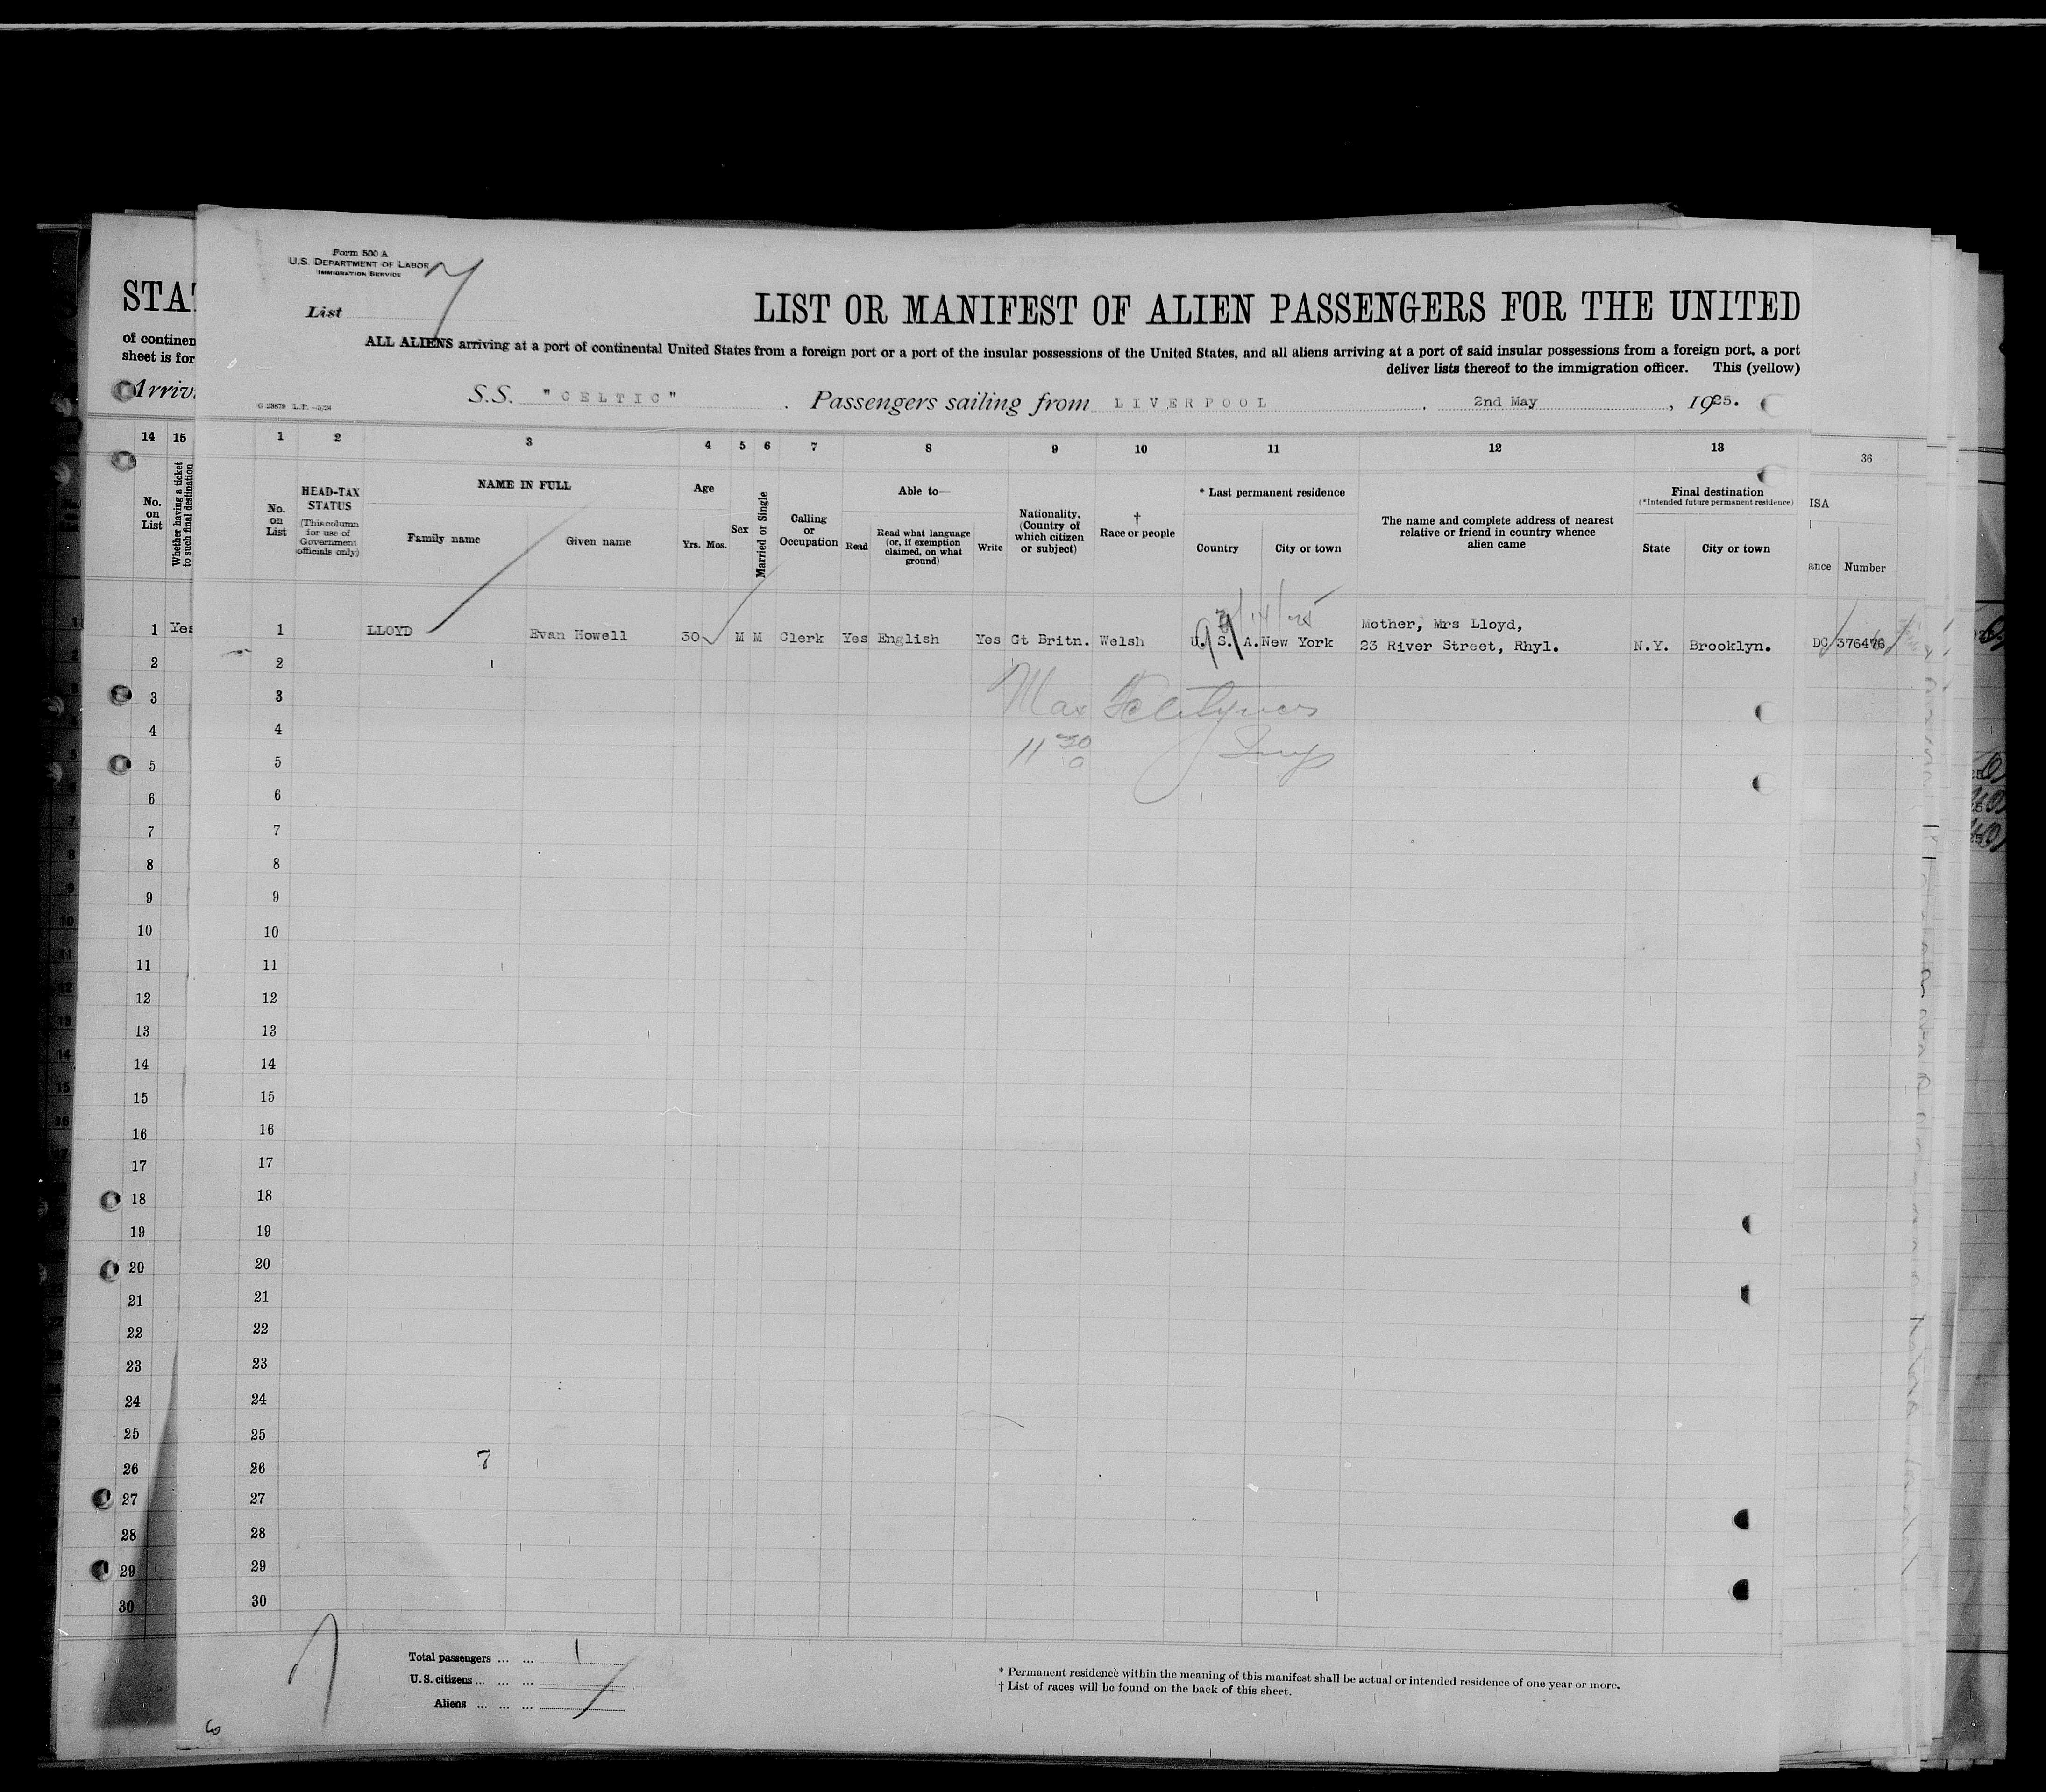 Form 500 A
U.S. DEPARTMENT OF LABOR
IMMIGRATION SERVICE
List 7
LIST OR MANIFEST OF ALIEN PASSENGERS FOR THE UNITED
ALL ALIENS arriving at a port of continental United States from a foreign port or a port of the insular possessions of the United States, and all aliens arriving at a port of said insular possessions from a foreign port, a port
deliver lists thereof to the immigration officer. This (yellow)
S.S. "CELTIC". Passengers sailing from LIVERPOOL, 2nd May, 1925.
STAT
of continen
sheet is for
Arriv
14 15
No. on List
Whether having a ticket to such final destination
1 2 3 4 5 6 7 8 9 10 11 12 13 36
No. on List
HEAD-TAX STATUS
(This column for use of Government officials only)
NAME IN FULL
Family name
Given name
Age
Yrs. Mos.
Sex
Married or Single
Calling or Occupation
Able to—
Read
Read what language (or, if exemption claimed, on what ground)
Write
Nationality. (Country of which citizen or subject)
† Race or people
* Last permanent residence
Country
City or town
The name and complete address of nearest relative or friend in country whence alien came
Final destination
(*Intended future permanent residence)
State
City or town
ISA
ance
Number
1 Yes
1 LLOYD Evan Howell 30 M M Clerk Yes English Yes Gt Britn. Welsh U. S. A. New York Mother, Mrs Lloyd,
23 River Street, Rhyl. N.Y. Brooklyn. DC 376476
2 2
3 3
4 4
5 5
6 6
7 7
8 8
9 9
10 10
11 11
12 12
13 13
14 14
15 15
16 16
17 17
18 18
19 19
20 20
21 21
22 22
23 23
24 24
25 25
26 26 7
27 27
28 28
29 29
30 30
Max
11 30 a
Insp
Total passengers ... ... 1
U.S. citizens ... ... ...
Aliens ... ... ...
* Permanent residence within the meaning of this manifest shall be actual or intended residence of one year or more.
† List of races will be found on the back of this sheet.